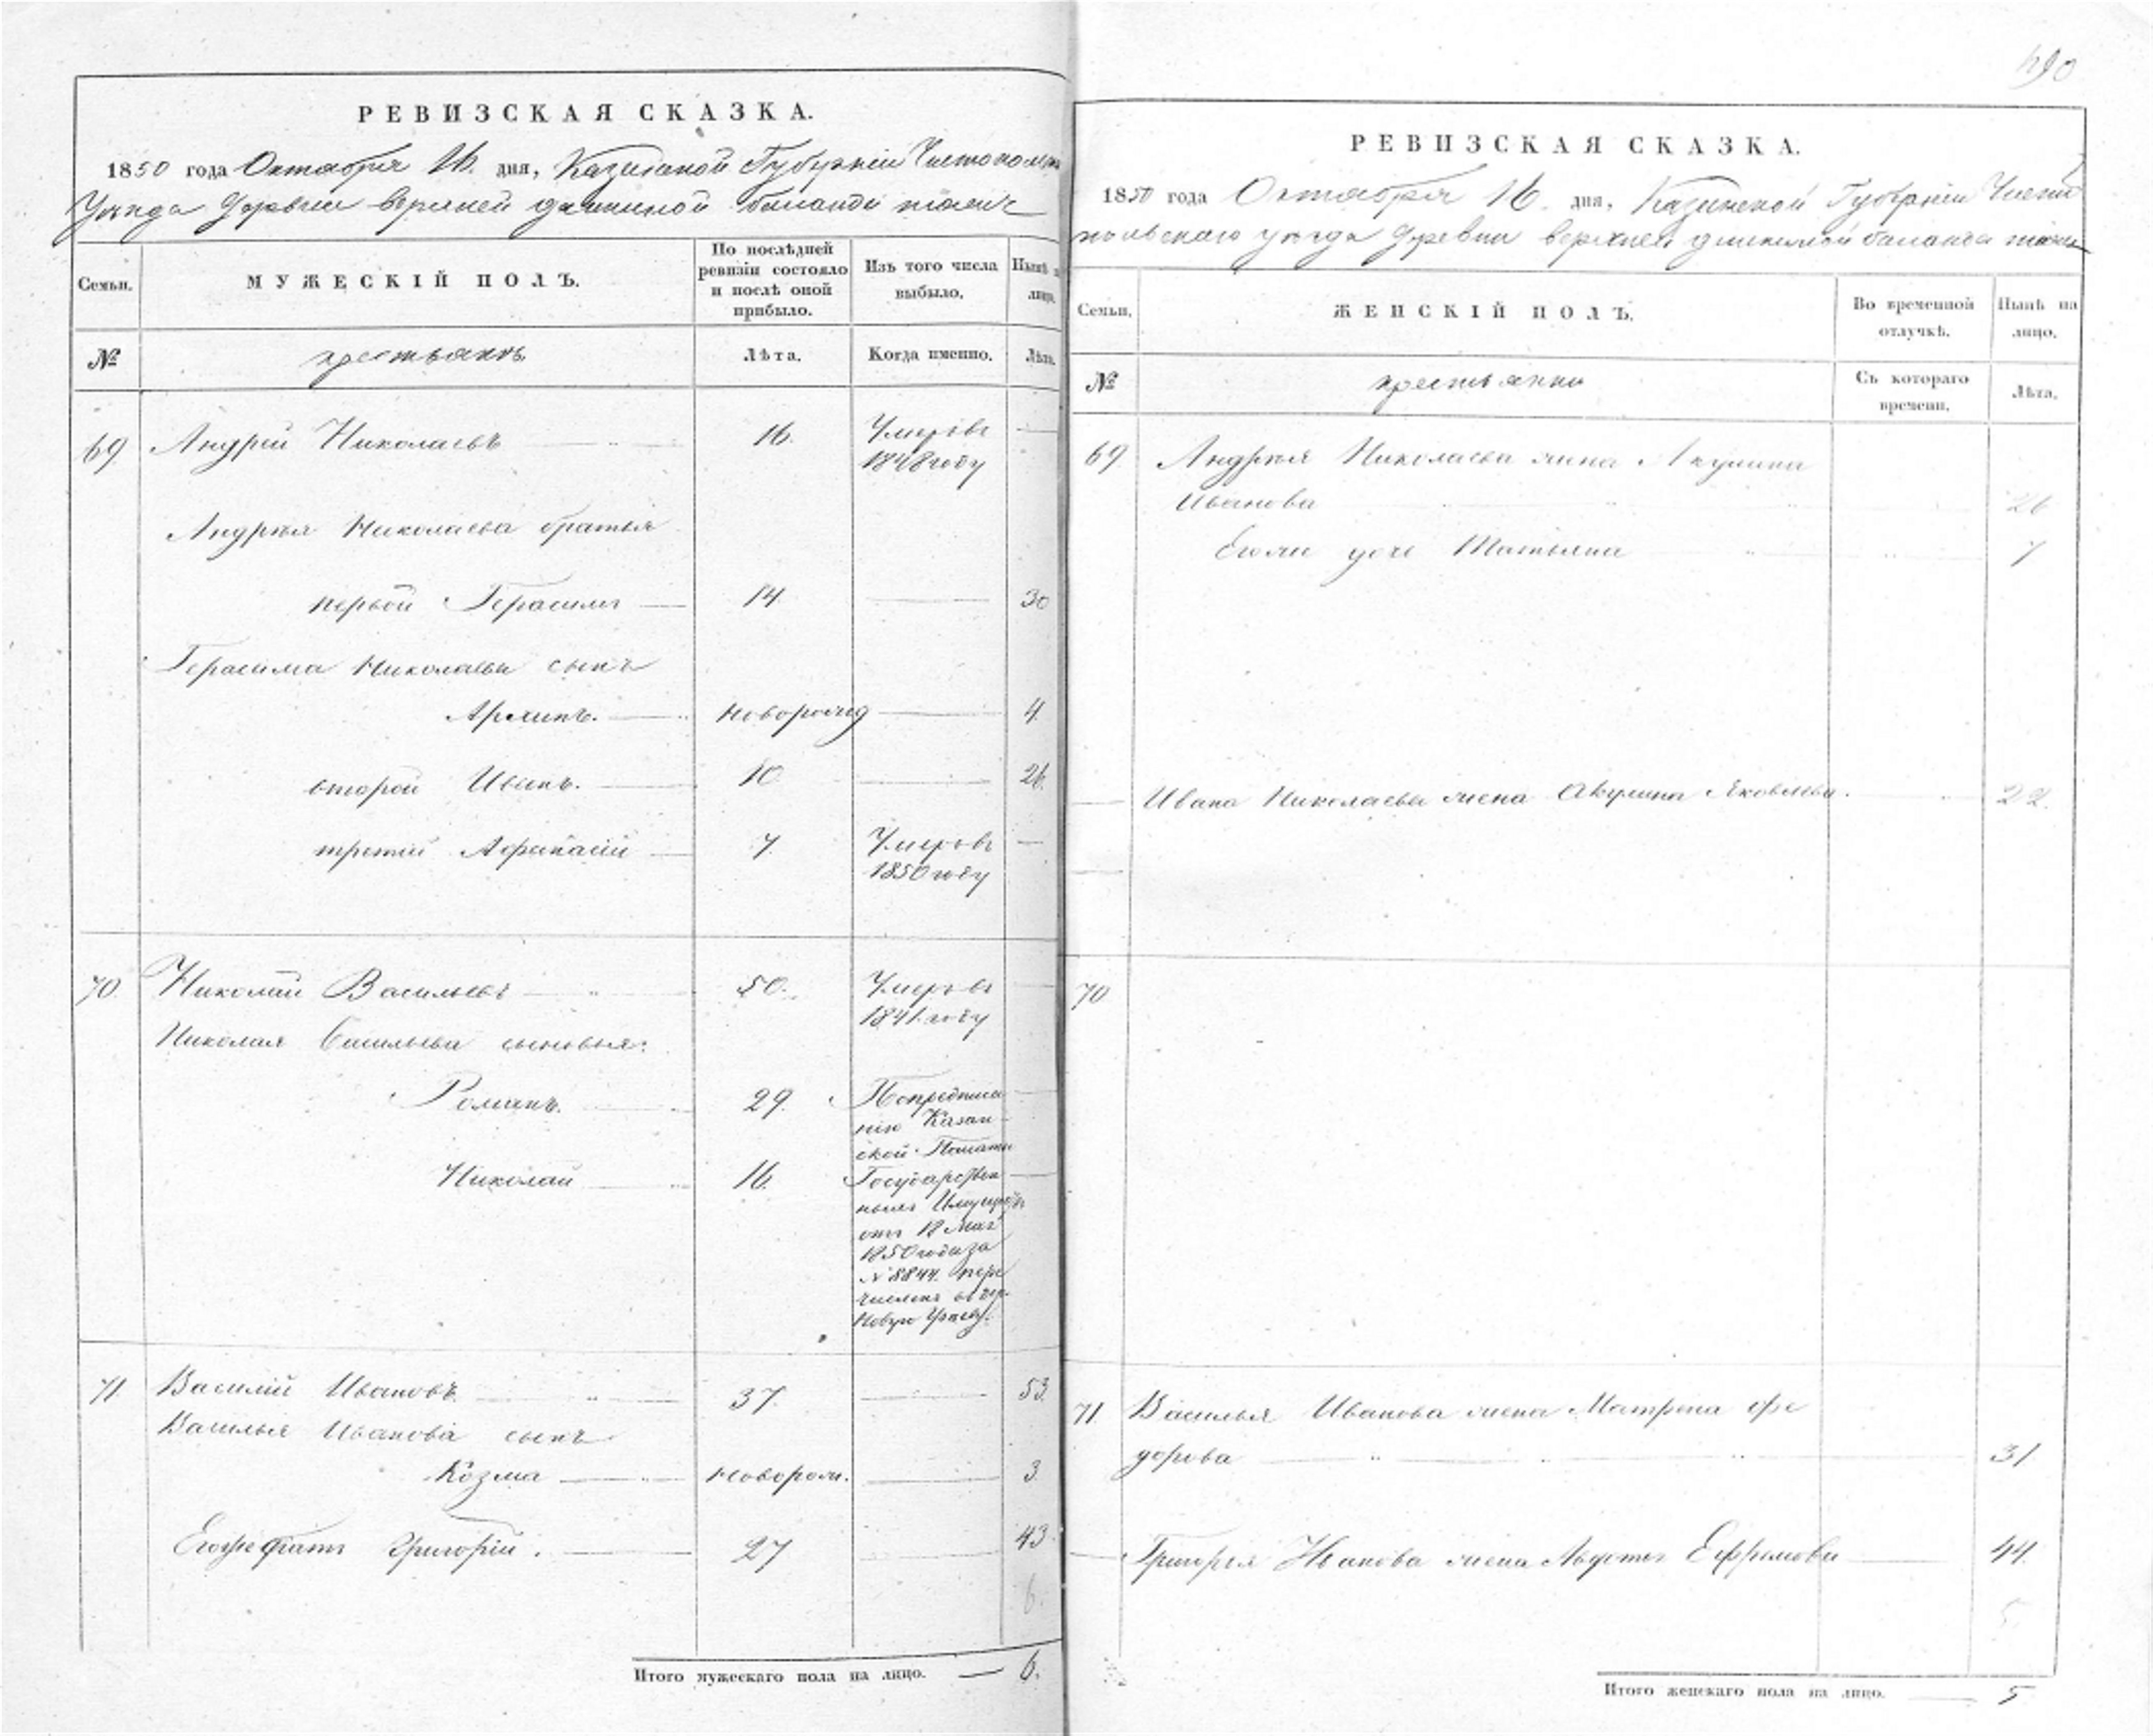 РЕВИЗСКАЯ СКАЗКА.
1850 года Октября 16. дня, Казанской Губерніи Чистополь
Уѣзда Деревни верхней
Семьи.
МУЖЕСКІЙ ПОЛЪ.
По послѣдней ревизіи состояло и послѣ оной прибыло.
Изъ того числа выбыло.
Нынѣ на лицо.
№
крестьянъ
Лѣта.
Когда именно.
Лѣта.
69 Андрей Николаевъ 16. Умеръ въ
1848 году
Андрея Николаева братья
первой Герасимъ 14. 30
Герасима Николаева сынъ
Архипъ. новорожд 4.
второй Иванъ. 10 26.
третій Афанасій 7. Умеръ въ
1850 году
70. Николай Васильевъ 50. Умеръ въ
1841 году
Николая Васильева сыновья:
Романъ. 29. По предписа
нію Казан
ской Палаты
Николай 16. Государствен
ныхъ Имуществъ
отъ 18 Мая
1850 года за
№ 8844. пере
численъ въ дер.
Новую
71. Василій Ивановъ. 37. 53.
Василья Иванова сынъ
Козма новорож. 3
Егоже братъ Григорій. 27 43.
6.
Итого мужескаго пола на лицо. 6.
490
РЕВИЗСКАЯ СКАЗКА.
1850 года Октября 16. дня, Казанской Губерніи Чисто
польскаго уѣзда Деревни верхней
Семьи.
ЖЕНСКІЙ ПОЛЪ.
Во временной отлучкѣ.
Нынѣ на лицо.
№
крестьянки
Съ котораго времени.
Лѣта.
69. Андрея Николаева жена Акулина
Иванова 26
Егоже дочь Татьяна 7
Ивана Николаева жена Акулина Яковлева. 22.
70
71. Василья Иванова жена Матрена Фе
дорова 31.
Григорья Иванова жена Авдотья Ефремова 44.
5
Итого женскаго пола на лицо. 5